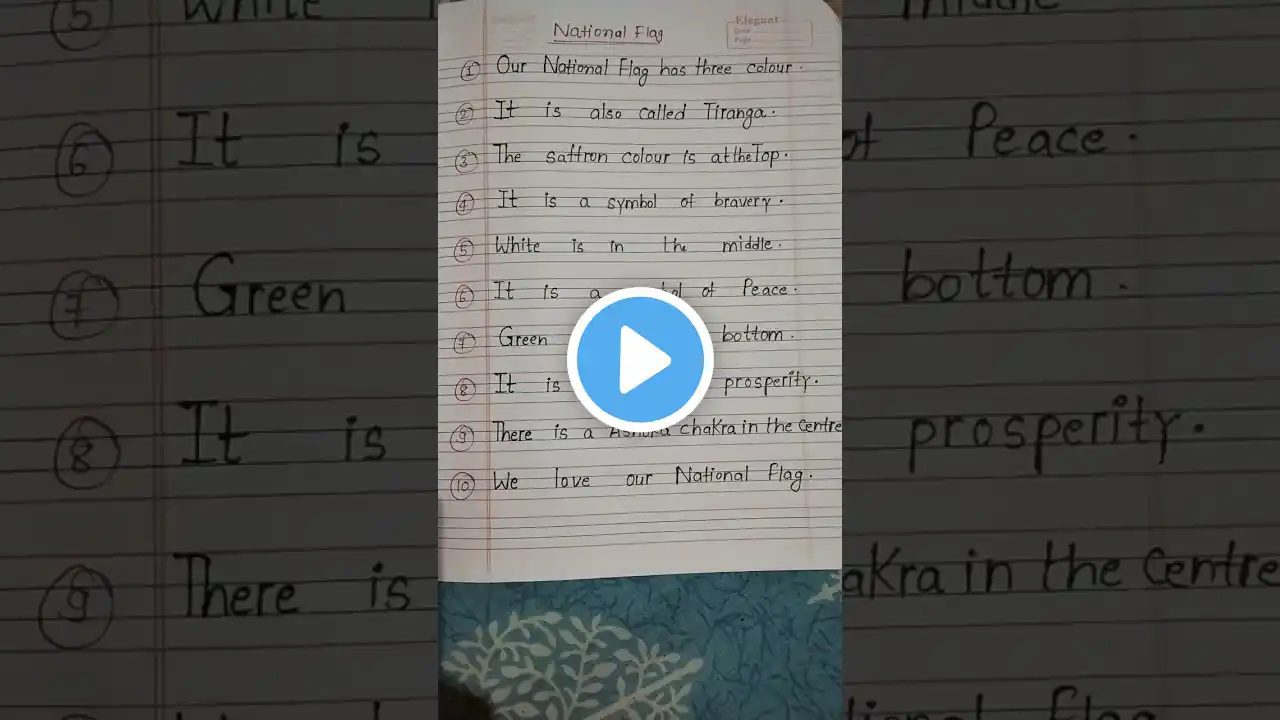 National Flag
Elegant
Date
Page
① Our National Flag has three colour.
② It is also called Tiranga.
③ The saffron colour is at the Top.
④ It is a symbol of bravery.
⑤ White is in the middle.
⑥ It is a of Peace.
⑦ Green bottom.
⑧ It is prosperity.
⑨ There is a Ashoka chakra in the Centre
⑩ We love our National Flag.
⑤ White middle
⑥ It is of Peace.
⑦ Green bottom.
⑧ It is prosperity.
⑨ There is in the Centre